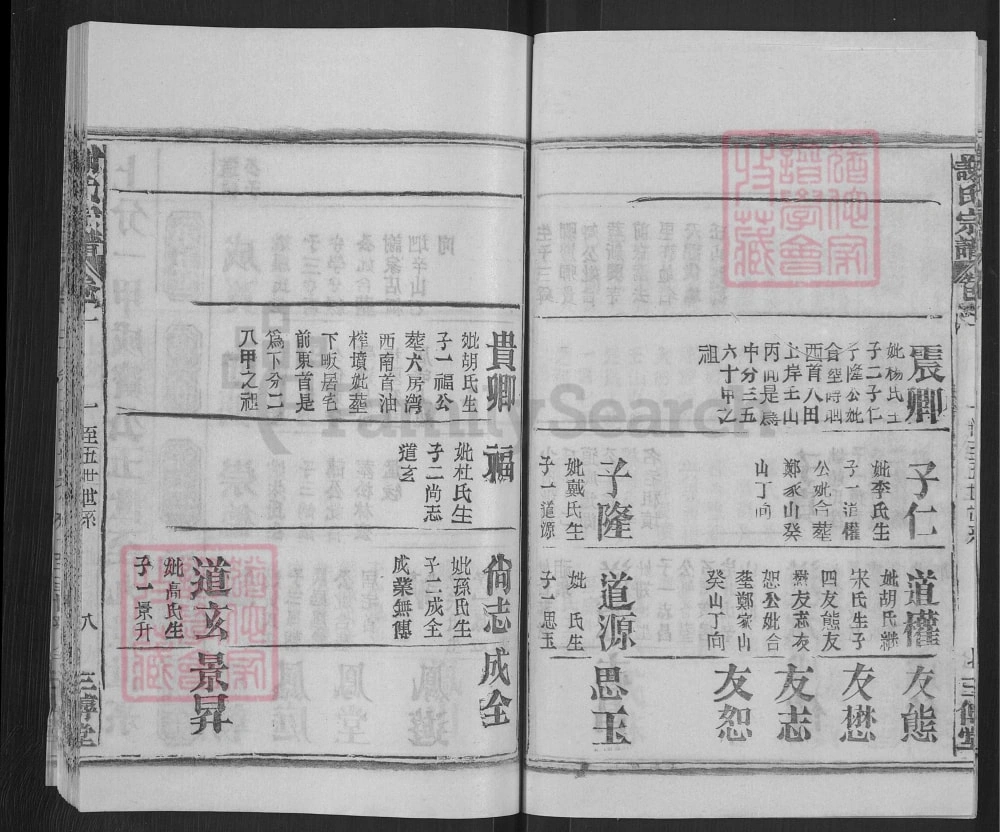 氏宗譜
震卿
妣楊氏生
子二子仁
子隆公妣
西首八田
上岸壬山
丙向是爲
中分三五
六十甲之
祖
子仁
妣李氏生
子一道權
公妣合葬
鄭家山癸
山丁向
子隆
妣戴氏生
子一道源
道權
妣胡氏繼
宋氏生子
四友熊友
懋友志友
恕公妣合
塟鄭家山
癸山丁向
道源
妣 氏生
子一思玉
友熊
友懋
友志
友恕
思玉
貴卿
妣胡氏生
子一福公
葬六房灣
西南首油
榨墳妣葬
下畈居宅
前東首是
爲下分二
八甲之祖
福
妣杜氏生
子二尚志
道玄
尚志
妣孫氏生
子二成全
成業無傳
道玄
妣高氏生
子一景升
成全
景昇
一至五世世系
八
譜學會
FamilySearch